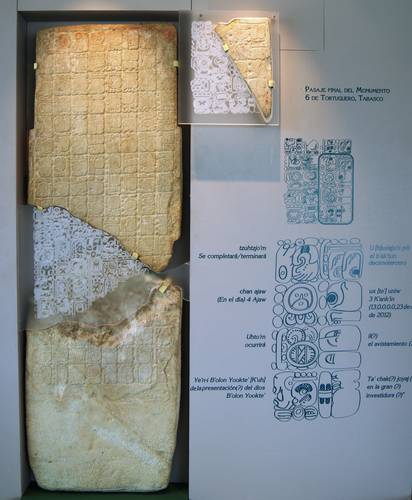 PASAJE FINAL DEL MONUMENTO
6 DE TORTUGUERO, TABASCO
tzuhtzjo'm
Se completará/terminará
el
decimotercero
chan ajaw
(En el día) 4 Ajaw
3 K'ank'in
(13.0.0.0.0, 23 de
de 2012)
Uhto'm
ocurrirá
Il(?)
el avistamiento
Ye'ni B'olon Yookte' [K'uh]
de la presentación(?) del dios
B'olon Yookte'
Ta' chak(?)
en la gran (?)
investidura (?)"